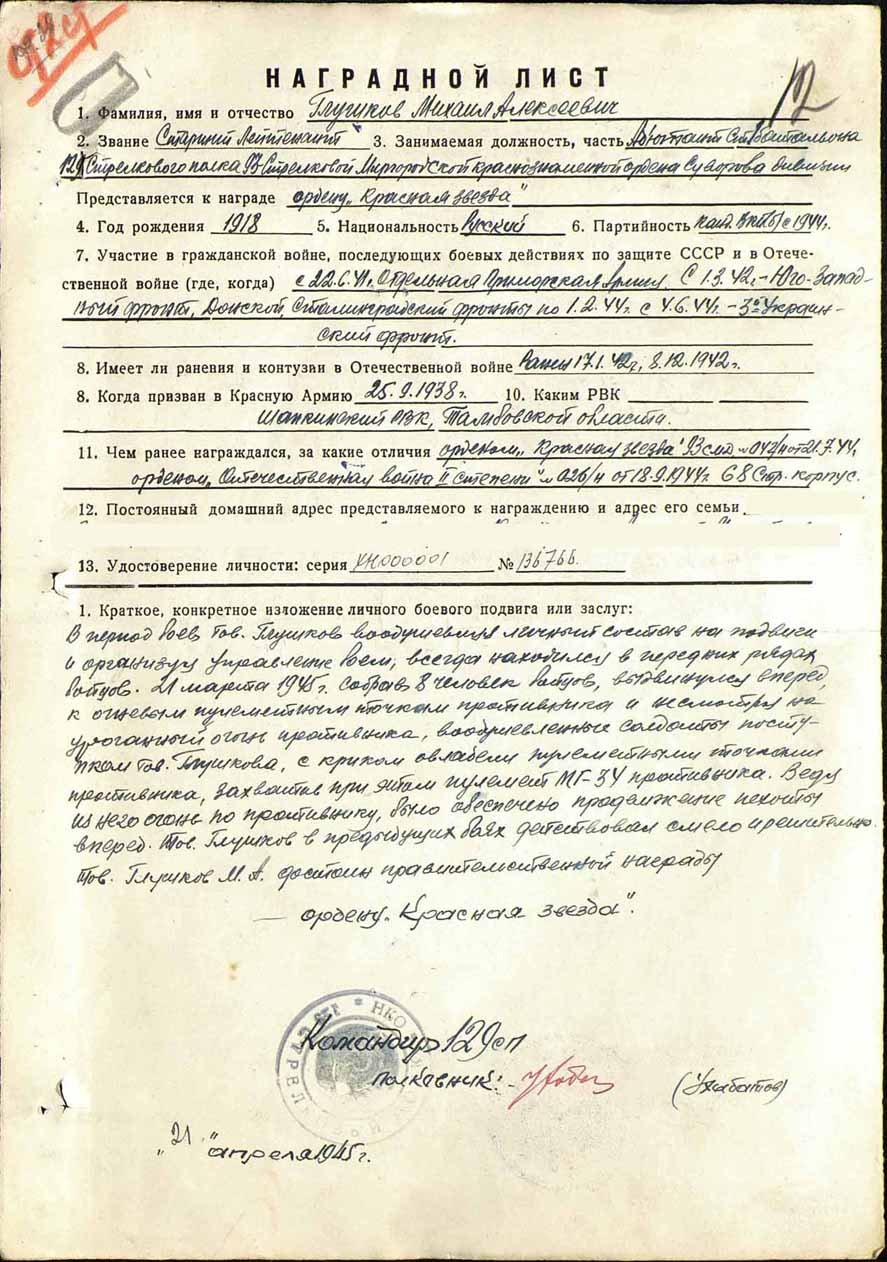 НАГРАДНОЙ ЛИСТ
12
1. Фамилия, имя и отчество Глушков Михаил Алексеевич
2. Звание Старший Лейтенант 3. Занимаемая должность, часть Адъютант Ст. батальона
129 Стрелкового полка 93 Стрелковой Миргородской краснознаменной ордена Суворова дивизии
Представляется к награде ордену „Красная звезда"
4. Год рождения 1918 5. Национальность Русский 6. Партийность канд. ВКП/б/ с 1944г.
7. Участие в гражданской войне, последующих боевых действиях по защите СССР и в Отече-
ственной войне (где, когда) с 22.6.41г. Отдельная Приморская Армия С 1.3.42г.-Юго-Запад-
ный фронт, Донской, Сталинградский фронты по 1.2.44г. с 4.6.44г.-3й Украин-
ский фронт.
8. Имеет ли ранения и контузии в Отечественной войне Ранен 17.1.42г, 8.12.1942г.
8. Когда призван в Красную Армию 25.9.1938г. 10. Каким РВК
Шапкинский РВК, Тамбовской области.
11. Чем ранее награждался, за какие отличия орденом „Красная звезда" 93 сд №042/н от 21.7.44,
орденом „Отечественная война II степени" №026/н от 18.9.1944г. 68 Стр. корпус.
12. Постоянный домашний адрес представляемого к награждению и адрес его семьи
13. Удостоверение личности: серия ХН000001 № 136766.
1. Краткое, конкретное изложение личного боевого подвига или заслуг:
В период боев тов. Глушков воодушевляя личный состав на подвиги
и организуя управление боем, всегда находился в передних рядах
бойцов. 21 марта 1945г. собрав 8 человек бойцов, выдвинулся вперед,
к огневым пулеметным точкам противника и несмотря на
ураганный огонь противника, воодушевленные солдаты посту-
пком тов. Глушкова, с криком овладели пулеметными точками
противника, захватив при этом пулемет МГ-34 противника. Ведя
из него огонь по противнику, было обеспечено продвижение пехоты
вперед. Тов. Глушков в предыдущих боях действовал смело и решительно.
Тов. Глушков М. А. достоин правительственной награды
— ордену „Красная звезда".
НКО
Командир 129 сп
полковник:-
„21" апреля 1945г.